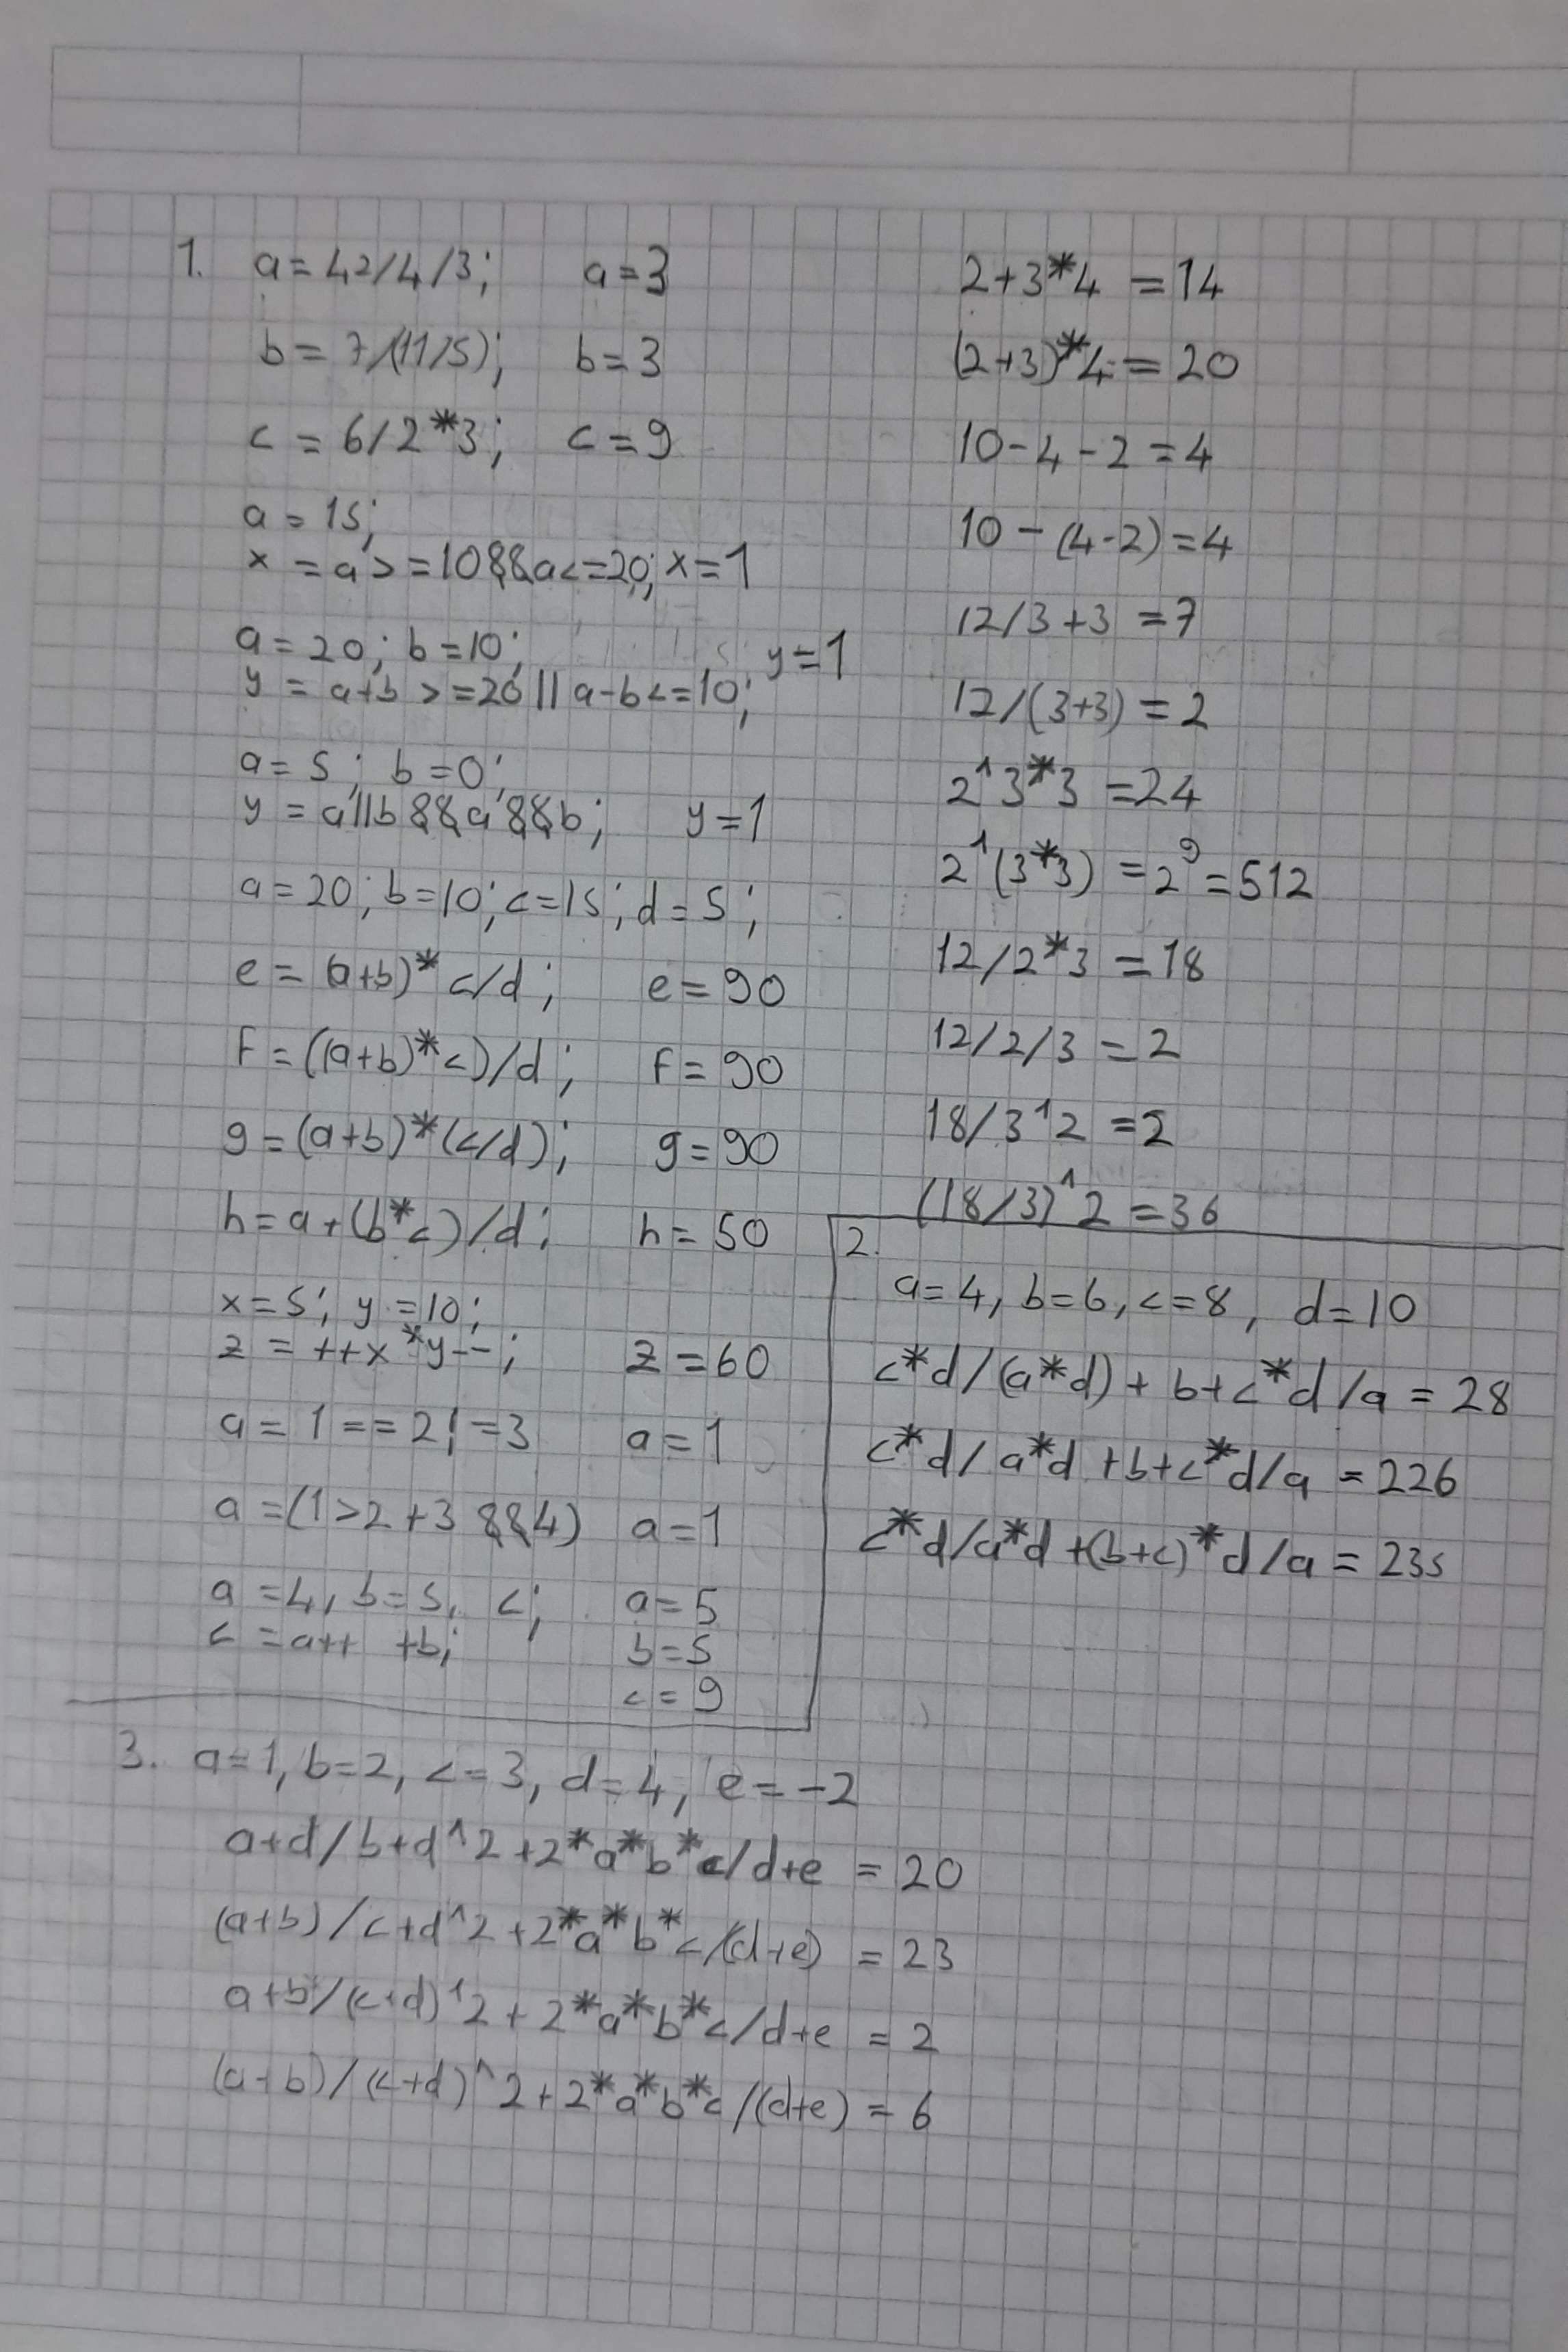 1. a = 42/4/3; a=3
b = 7/(11/5); b=3
c = 6/2*3; c=9
a = 15;
x = a>=10&&a<=20; x=1
a = 20; b=10;
y = a+b >=20 || a-b<=10; y=1
a = 5; b=0;
y = a||b&&a&&b; y=1
a=20; b=10; c=15; d=5;
e = (a+b)*c/d; e=90
f = ((a+b)*c)/d; f=90
g = (a+b)*(c/d); g=90
h=a+(b*c)/d; h=50
x=5; y=10;
z = ++x*y--; z=60
a = 1==2!=3 a=1
a =(1>2+3 &&4) a=1
a =4, b=5, c; a=5
c = a++ +b; b=5
c=9
2+3*4 =14
(2+3)*4 = 20
10-4-2 =4
10-(4-2)=4
12/3+3 =7
12/(3+3) =2
2^3*3 =24
2^(3*3) =2⁹=512
12/2*3 =18
12/2/3 =2
18/3^2 =2
(18/3)^2 =36
2.
a=4, b=6, c=8, d=10
c*d/(a*d) + b+c*d/a = 28
c*d/a*d +b+c*d/a = 226
c*d/a*d +(b+c)*d/a = 235
3. a=1, b=2, c=3, d=4, e=-2
a+d/b+d^2+2*a*b*c/d+e = 20
(a+b)/c+d^2+2*a*b*c/(d+e) = 23
a+b/(c+d)^2+2*a*b*c/d+e = 2
(a+b)/(c+d)^2+2*a*b*c/(d+e) = 6